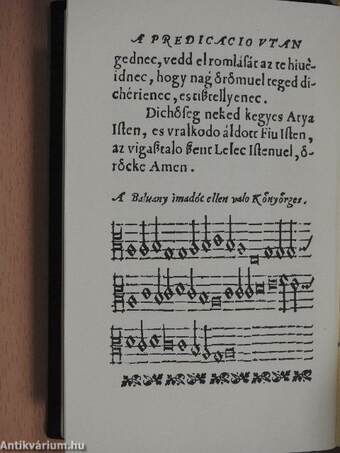 A PREDICACIO VTAN
gednec, vedd el romlását az te hiuė-
idnec, hogy nag̃ ȯrȯmuel teged di-
chérienec, es tißtellyenec.
Dichȯſeg neked kegyes Atya
Iſten, es vralkodo áldott Fiu Iſten,
az vigaßtalo ßent Lelec Iſtenuel, ȯ-
rȯcke Amen.
A Baluany imadóc ellen valo Kȯnyȯrges.
Antikvárium.hu
Antikvárium.hu